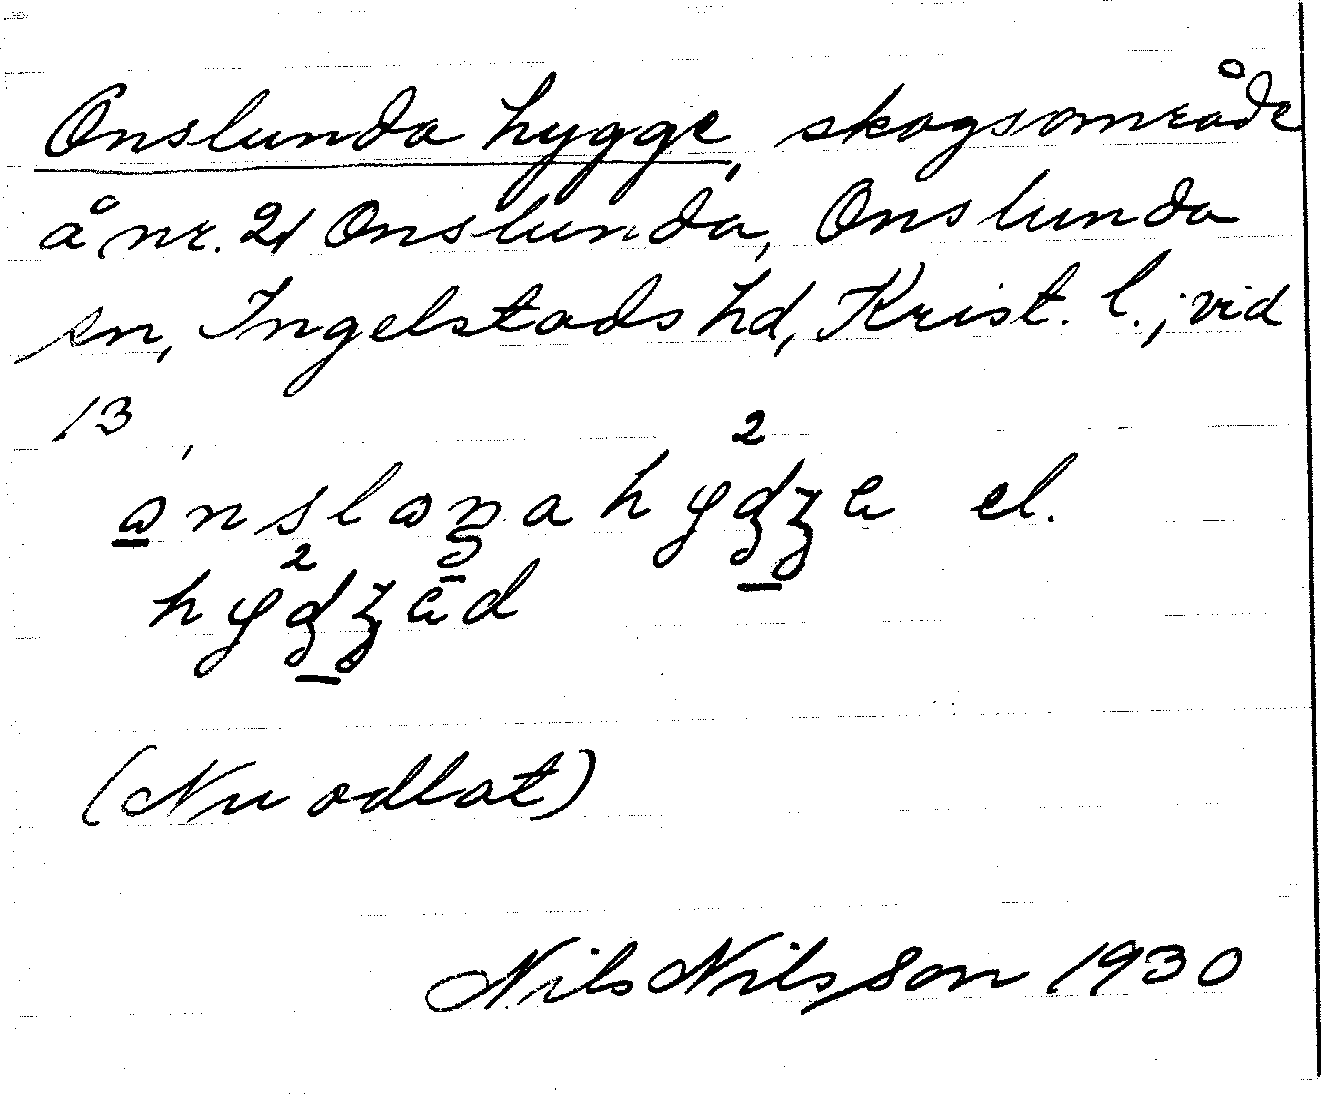 Onslunda hygge, skogsområde
å nr. 21 Onslunda, Onslunda
sn, Ingelstads hd, Krist. l.; vid
13,
el.
(Nu odlat)
Nils Nilsson 1930